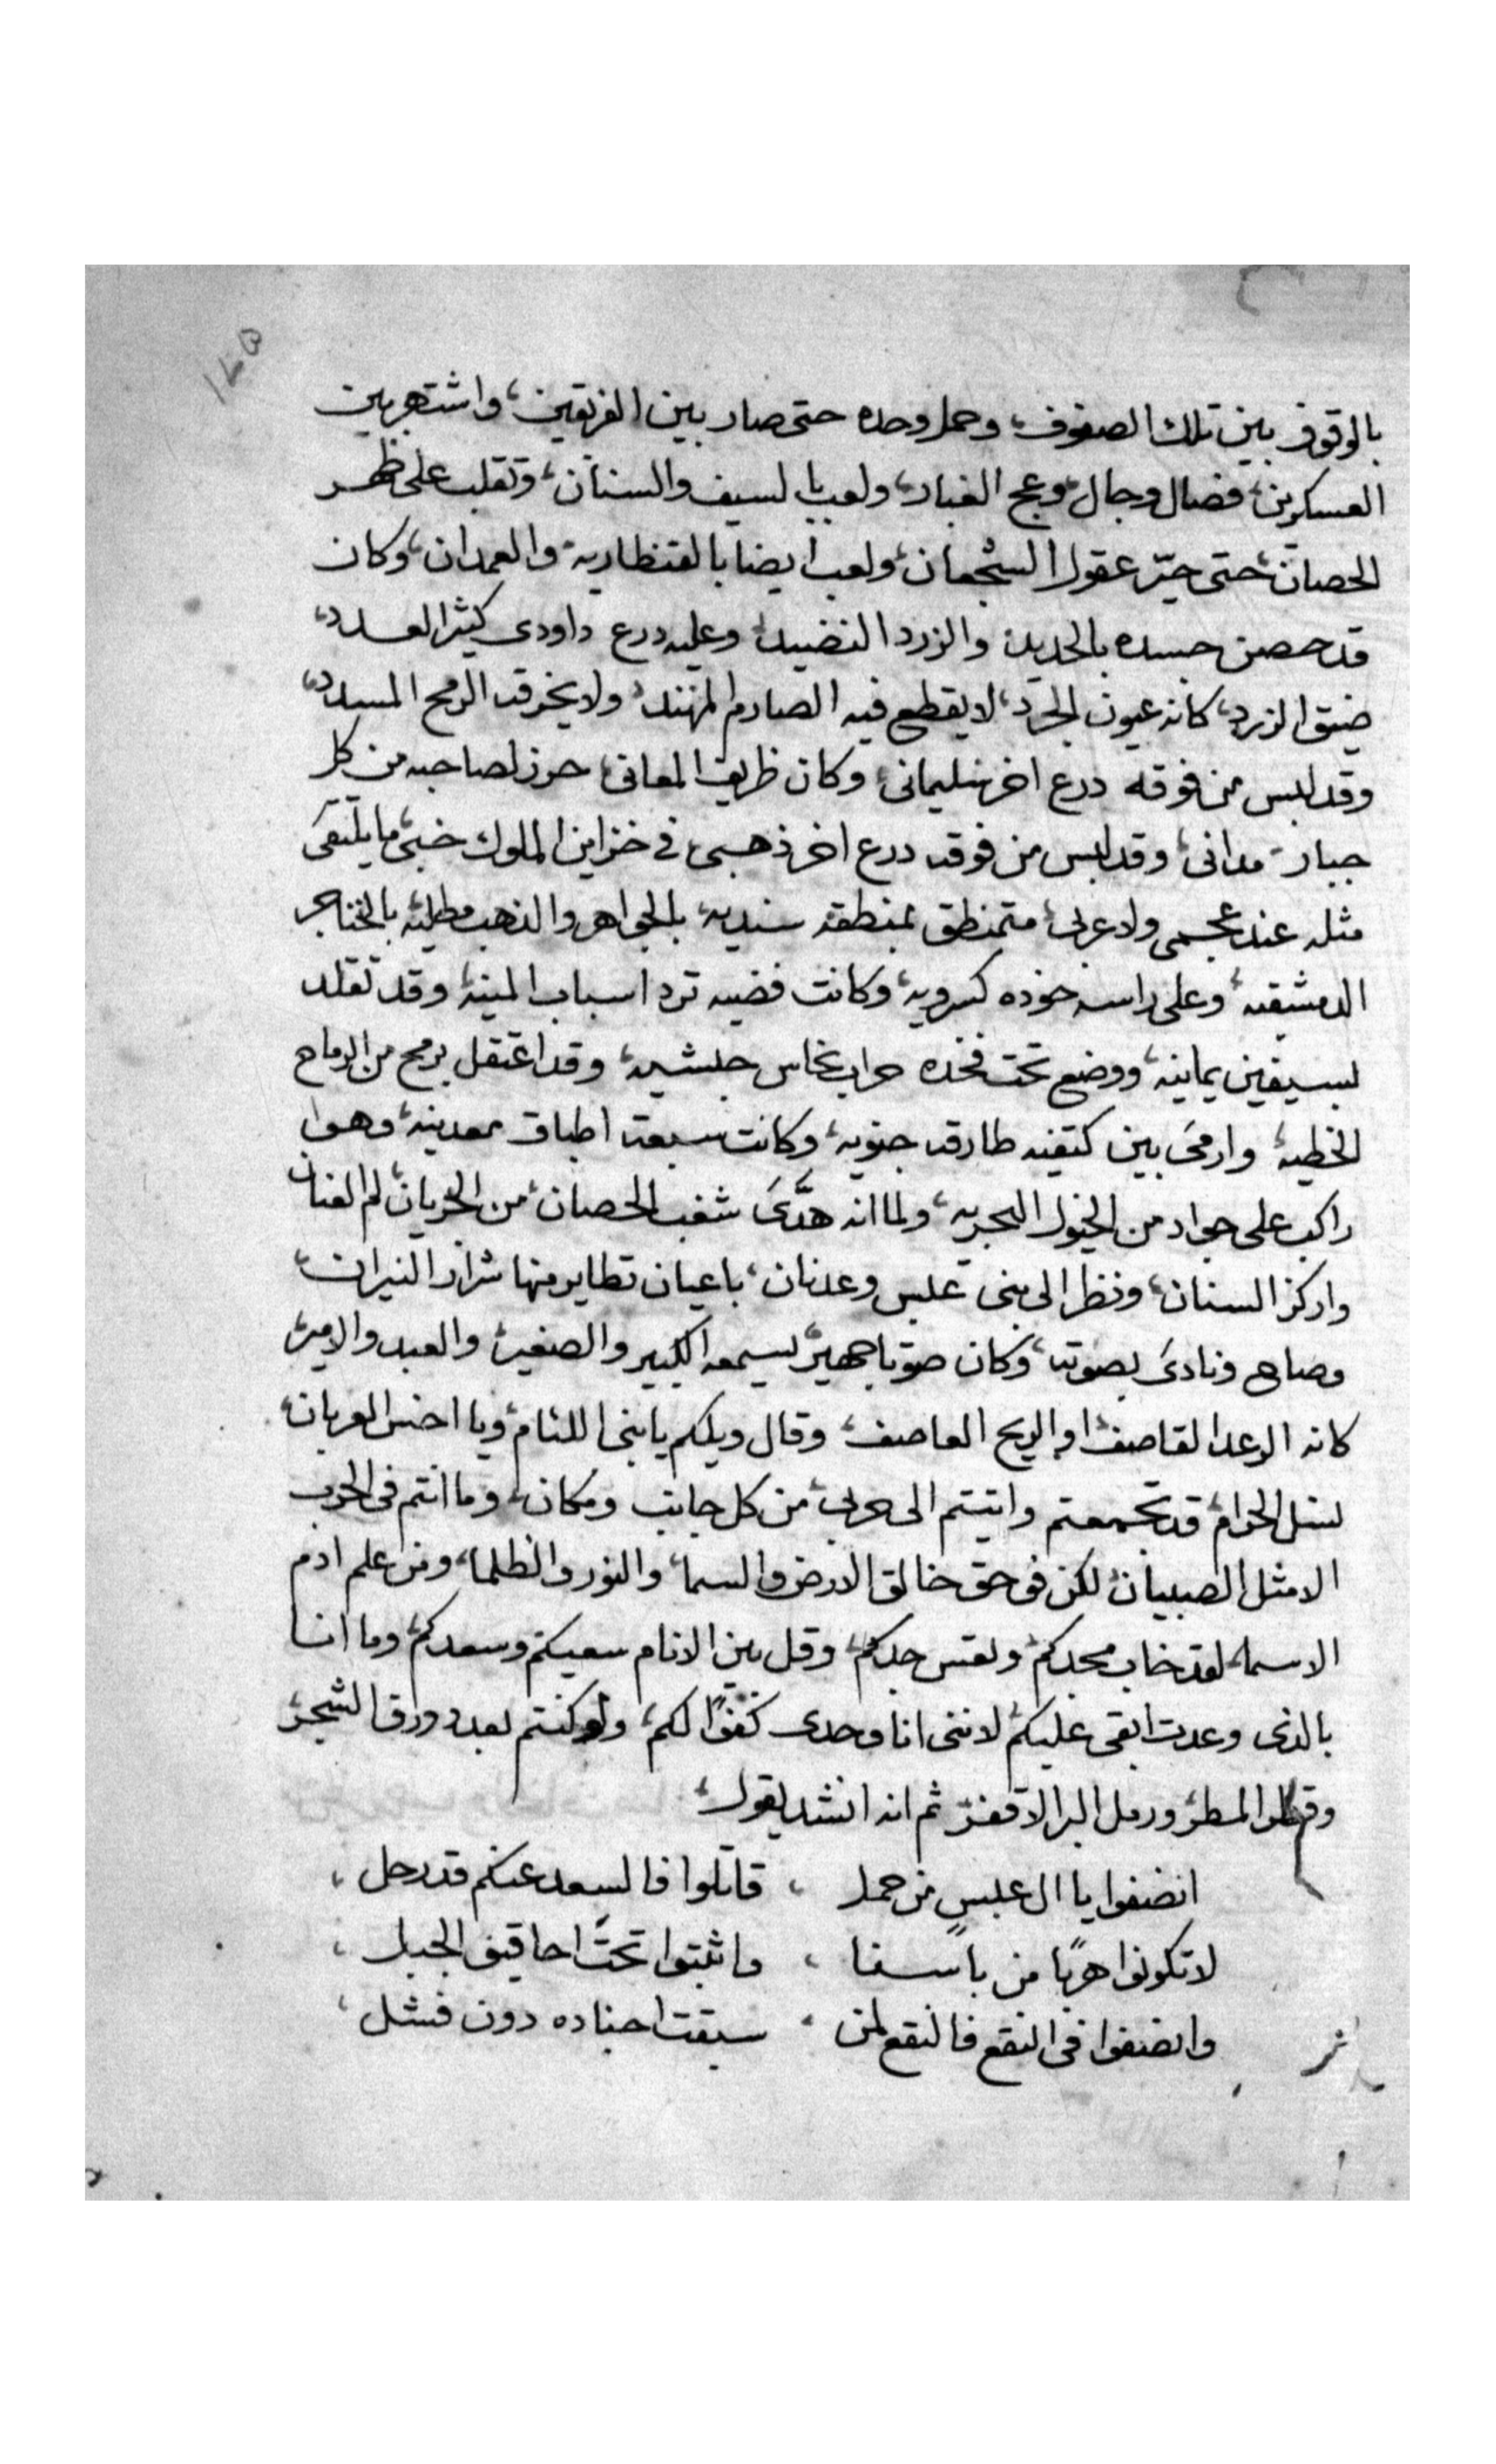 بالوقوف بين تلك الصفوف، وحمل وحده حتى صار بين الفريقين، واشتهر بين
العسكرين، فصال وجال، وعج الغبار، ولعب بالسيف والسنان، وتقلب على ظهر
الحصان، حتى حيّر عقول الشجعان، ولعب ايضا بالقنطاريه، والعمدان، وكان
قد حصن جسده بالحديد، والزرد النضيد، وعليه درع داودى كثير العدد،
ضيق الزرد، كانه عيون الجرد، لا يقطع فيه الصارم المهند، ولا يخرقه الرمح المسدد،
وقد لبس من فوقه درع اخر سليمانى، وكان ظريف المعانى، حرز لصاحبه من كل
جبار مدانى، وقد لبس من فوقه درع اخر ذهبى فى خزاين الملوك خبى، ما يلتقى
مثله عند عجمى ولا عربى، متمنطق بمنطقه سنديه، بالجواهر والذهب مطليه، بالخناجر
الدمشقيه، وعلى راسه خوده كسرويه، وكانت فضيه ترد اسباب المنيه، وقد تقلد
بسيفين يمانيه، ووضع تحت فخده حراب نحاس حبشيه، وقد اعتقل برمح من الرماح
الخطيه، وارمى بين كتفيه طارقه جنويه، وكانت سبعة اطباق معدنيه، وهو
راكب على جواد من الخيول البحريه، ولما انه هدَّى شغب الحصان، من الجريان، لم العنان
واركز السنان، ونظر الى بنى عبس وعدنان، باعيان تطاير منها شرار النيران،
وصاح ونادى بصوته، وكان صوتا جهير، يسمعه الكبير والصغير، والعبد والامير،
كانه الرعد القاصف، او الريح العاصف، وقال ويلكم يا بنى اللئام، ويا اخس العربان،
نسل الحرام، قد تجمعتم واتيتم الى حربى، من كل جانب ومكان، وما انتم فى الحرب
الا مثل الصبيان، لكن فى حق خالق الارض والسما، والنور والظلما، ومن علم ادم
الاسما، لقد خاب مجدكم، وتعس جدكم، وقل بين الانام سعيكم وسعدكم، وما انا
بالذى وعدت ابقى عليكم، لاننى انا وحدى كفوًا لكم، ولو كنتم بعدد ورق الشجر،
وقطر المطر، ورمل البر الاقفر، ثم انه انشد يقول،
انصفوا يا ال عبسٍ من حمل ، قاتلوا فالسعد عنكم قد رحل ،
لا تكونوا هربًا من باسنا ، واثبتوا تحت احاقيف الجبل ،
وانصفوا فى النقع فالنقع لمن ، سبقت اجناده دون فشل ،